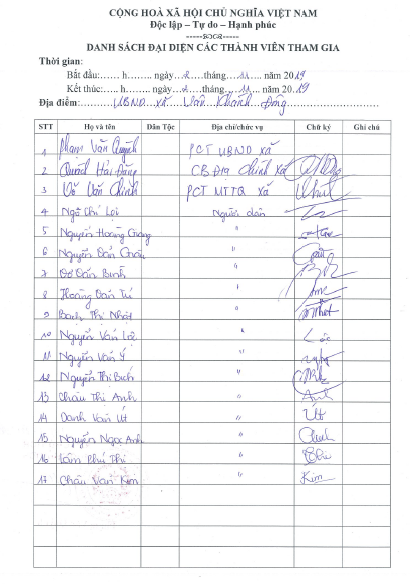 CỘNG HOÀ XÃ HỘI CHỦ NGHĨA VIỆT NAM
Độc lập – Tự do – Hạnh phúc
DANH SÁCH ĐẠI DIỆN CÁC THÀNH VIÊN THAM GIA
Thời gian:
Bắt đầu:...... h........ ngày 2 tháng 11 năm 2019
Kết thúc:..... h........ ngày 2 tháng 11 năm 2019
Địa điểm: UBND xã Vân Khánh Đông
STT Họ và tên Dân Tộc Địa chỉ/chức vụ Chữ ký Ghi chú
1 Phạm Văn Quỳnh PCT UBND xã
2 Quách Hải Đăng CB Địa chính xã
3 Võ Văn Chính PCT MTTQ xã
4 Ngô Chí Lợi Người dân
5 Nguyễn Hoàng Giang "
6 Nguyễn Văn "
7 Văn Bình "
8 Hoàng Văn Tú "
9 Bạch Thị Nhật "
10 Nguyễn Văn Lộc " Lộc
11 Nguyễn Văn Ý "
12 Nguyễn Thị Bích "
13 Châu Thị Anh " Anh
14 Danh Văn Út " Út
15 Nguyễn Ngọc Anh "
16 Lâm Phú Thi "
17 Châu Văn Kim " Kim